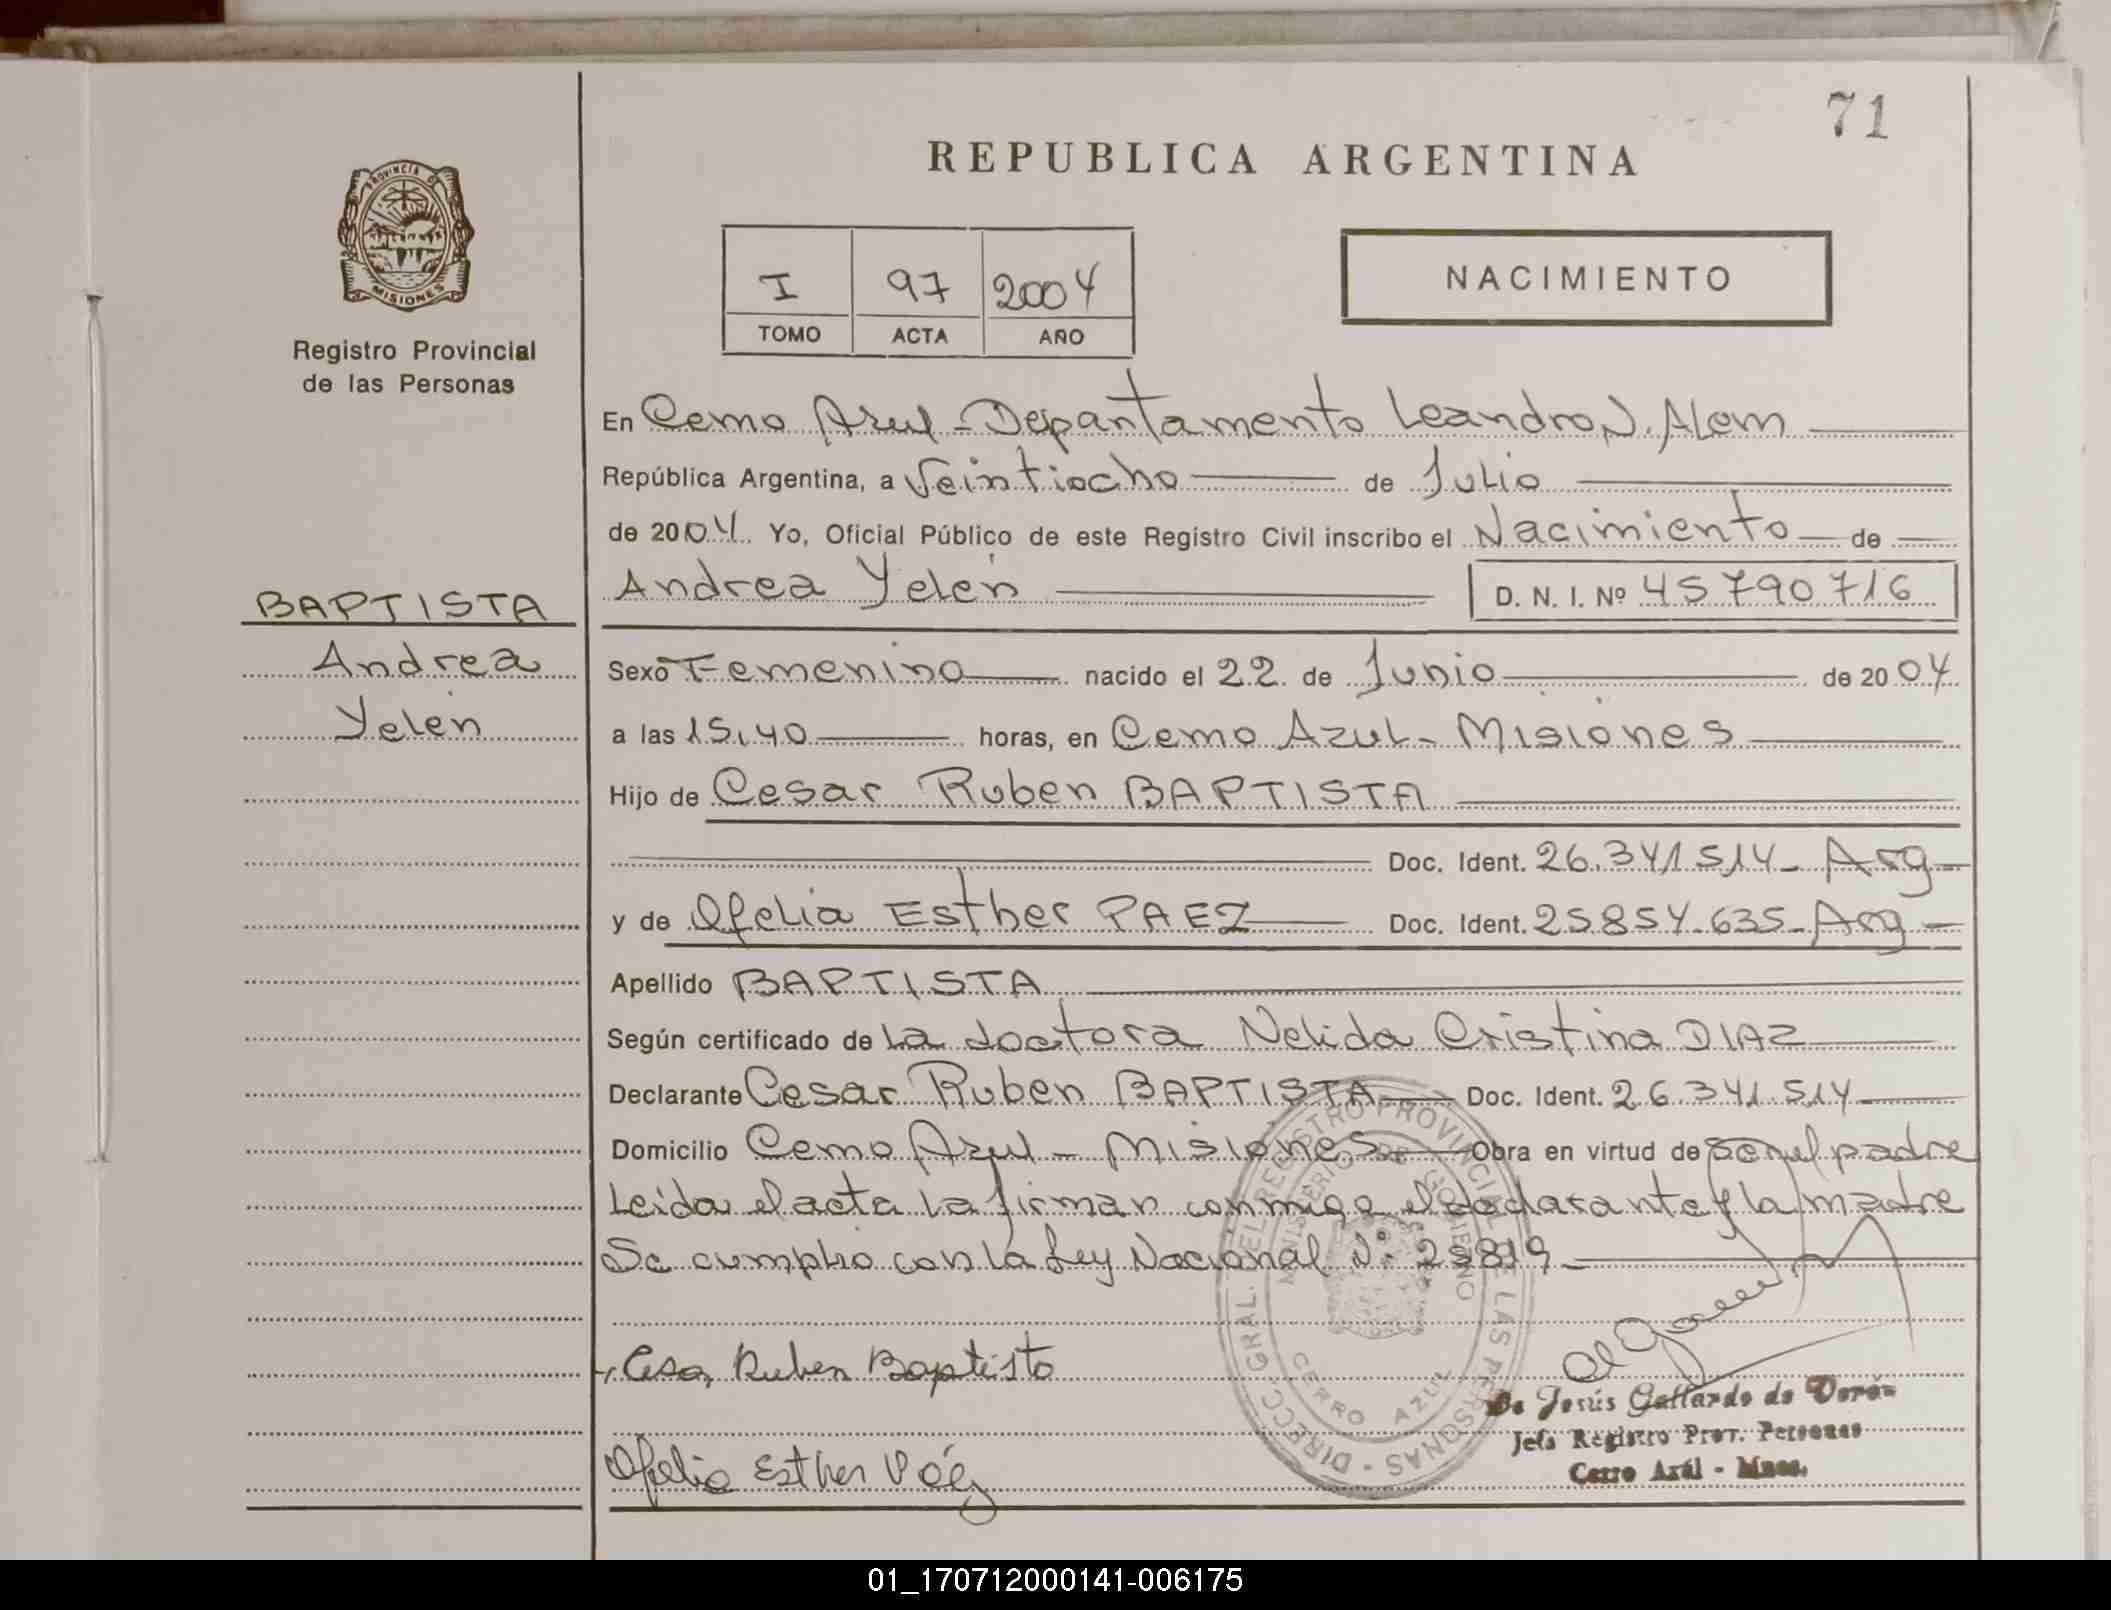 71
REPUBLICA ARGENTINA
PROVINCIA DE MISIONES
Registro Provincial
de las Personas
I 97 2004
TOMO ACTA AÑO
NACIMIENTO
En Cerro Azul - Departamento Leandro N. Alem
República Argentina, a Veintiocho de Julio
de 2004. Yo, Oficial Público de este Registro Civil inscribo el Nacimiento de
Andrea Yelén D. N. I. Nº 45790716
BAPTISTA
Andrea
Yelén
Sexo Femenino nacido el 22 de Junio de 2004
a las 15,40 horas, en Cerro Azul - Misiones
Hijo de Cesar Ruben BAPTISTA
Doc. Ident. 26.341.514 - Arg -
y de Ofelia Esther PAEZ Doc. Ident. 25.854.635 - Arg -
Apellido BAPTISTA
Según certificado de la doctora Nelida Cristina DIAZ
Declarante Cesar Ruben BAPTISTA Doc. Ident. 26.341.514
Domicilio Cerro Azul - Misiones Obra en virtud de ser el padre
Leida el acta la firman conmigo el declarante y la madre
Se cumplio con la Ley Nacional Nº 25819
Cesar Ruben Baptista
Ofelia Esther Páez
DIRECC. GRAL. DEL REGISTRO PROVINCIAL DE LAS PERSONAS
MINISTERIO DE GOBIERNO
CERRO AZUL
De Jesús Gallardo de Verón
Jefa Registro Prov. Personas
Cerro Azúl - Mnes.
01_170712000141-006175